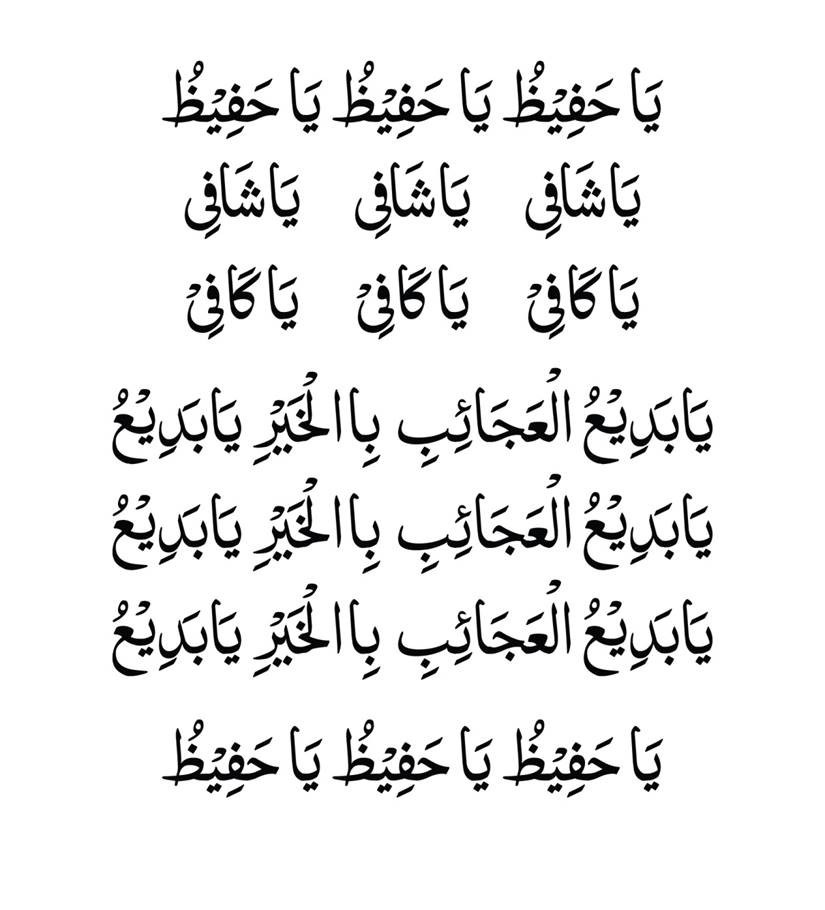 يَا حَفِيْظُ يَا حَفِيْظُ يَا حَفِيْظُ
يَا شَافِي يَا شَافِي يَا شَافِي
يَا كَافِيْ يَا كَافِيْ يَا كَافِيْ
يَابَدِيْعُ الْعَجَائِبِ بِاالْخَيْرِ يَابَدِيْعُ
يَابَدِيْعُ الْعَجَائِبِ بِاالْخَيْرِ يَابَدِيْعُ
يَابَدِيْعُ الْعَجَائِبِ بِاالْخَيْرِ يَابَدِيْعُ
يَا حَفِيْظُ يَا حَفِيْظُ يَا حَفِيْظُ